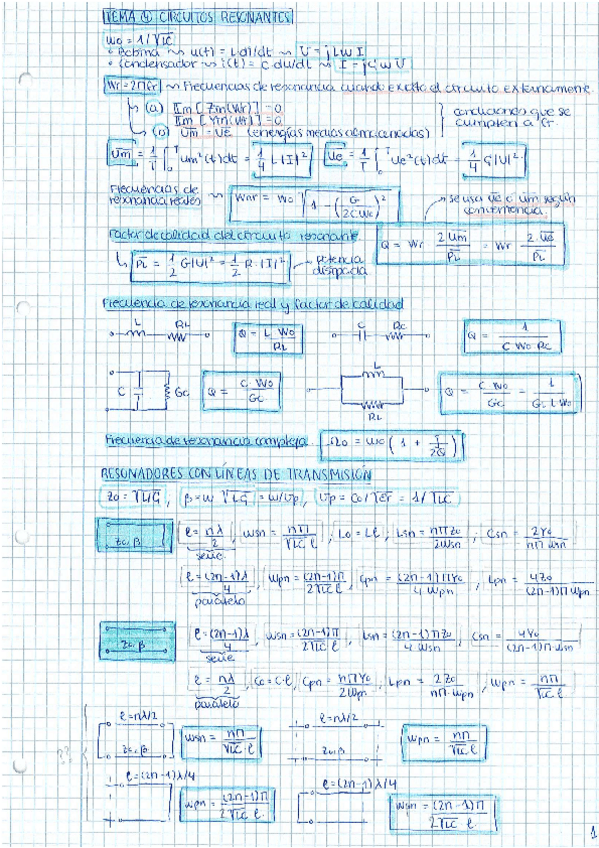 TEMA ① CIRCUITOS RESONANTES
ω0 = 1/√LC
• Bobina ~> u(t) = L di/dt ~> U = jLω I
• Condensador ~> i(t) = C du/dt ~> I = jCω U
ωr = 2πfr ~> Frecuencias de resonancia cuando excito el circuito externamente
↳ (a) Im[Zin(ωr)] = 0
Im[Yin(ωr)] = 0
↳ (b) Um = Ue (energías medias almacenadas)
} condiciones que se cumplen a fr
Um = 1/T ∫₀ᵀ um²(t)dt = 1/4 L|I|² Ue = 1/T ∫₀ᵀ ue²(t)dt = 1/4 C|U|²
Frecuencias de resonancia reales ~> ωnr = ω0 √(1 - (G/2Cω0)²)
se usa Ue o Um según conveniencia
Factor de calidad del circuito resonante Q = ωr 2Um/PL = ωr 2·Ue/PL
↳ PL = 1/2 G|U|² = 1/2 R·|I|² → potencia disipada
Frecuencia de resonancia real y factor de calidad
L RL Q = L ω0/RL C RC Q = 1/(C ω0 RC)
C GC Q = C·ω0/GC L RL Q = C ω0/GC = 1/(G·L ω0)
Frecuencia de resonancia compleja Ω0 = ω0(1 + j/2Q)
RESONADORES CON LÍNEAS DE TRANSMISIÓN
Z0 = √L/C, β = ω √LC = ω/vp, vp = c0/√εr = 1/√LC
Z0, β l = nλ/2 serie, ωsn = nπ/(√LC l), L0 = Ll, Lsn = nπZ0/2ωsn, Csn = 2Y0/(nπ ωsn)
l = (2n-1)λ/4 paralelo, ωpn = (2n-1)π/(2√LC l), Cpn = (2n-1)πY0/4ωpn, Lpn = 4Z0/((2n-1)π ωpn)
Z0, β l = (2n-1)λ/4 serie, ωsn = (2n-1)π/(2√LC l), Lsn = (2n-1)πZ0/4ωsn, Csn = 4Y0/((2n-1)π·ωsn)
l = nλ/2 paralelo, C0 = C·l, Cpn = nπY0/2ωpn, Lpn = 2Z0/(nπ·ωpn), ωpn = nπ/(√LC l)
??
l = nλ/2 Z0, β ωsn = nπ/(√LC·l) l = nλ/2 Z0, β ωpn = nπ/(√LC l)
l = (2n-1)λ/4 ωpn = (2n-1)π/(2√LC l) l = (2n-1)λ/4 ωsn = (2n-1)π/(2√LC l)
1